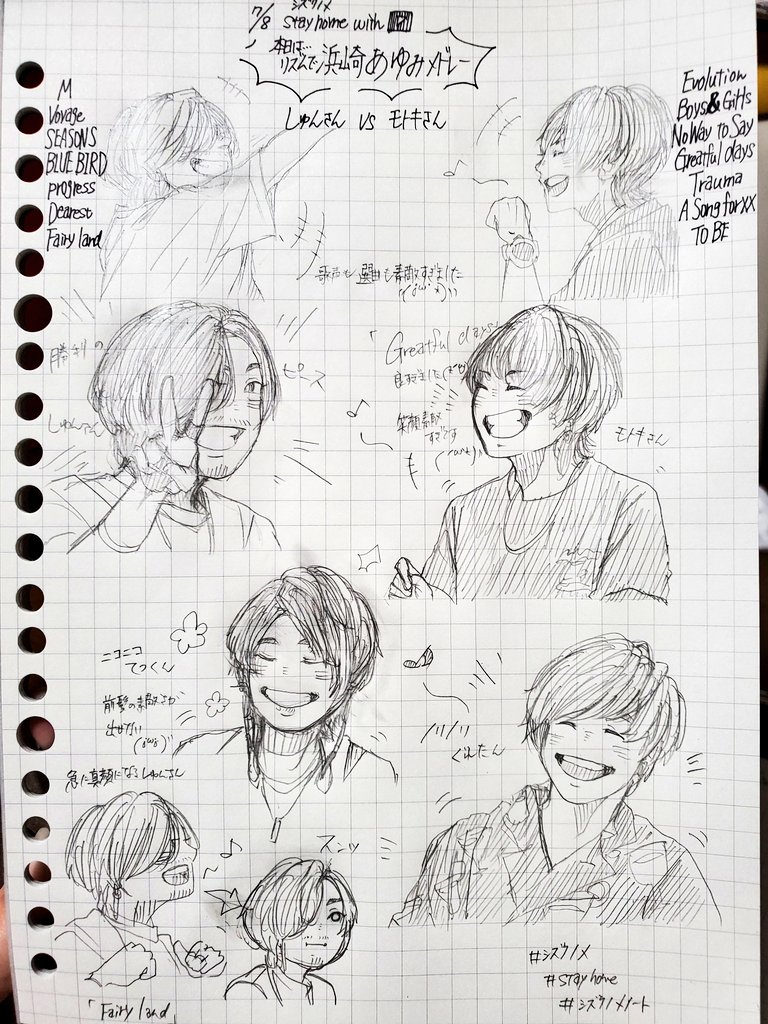 シズクノメ
7/8 Stay home with
本日は
リズムで浜崎あゆみメドレー
しゅんさん vs モトキさん
M
Voyage
SEASONS
BLUE BIRD
progress
Dearest
Fairy land
Evolution
Boys & Girls
No Way to Say
Greatful days
Trauma
A Song for XX
TO BE
歌声も 選曲も素敵すぎました
勝利の
しゅんさん
ピース
「Greatful days」
良すぎました
笑顔素敵
すぎです
モトキさん
ニコニコ
てつくん
前髪の素敵さが
出せない
ノリノリ
くれたん
急に真顔になるしゅんさん
スンッ
「Fairy land」
#シズクノメ
#Stay home
#シズクノメノート